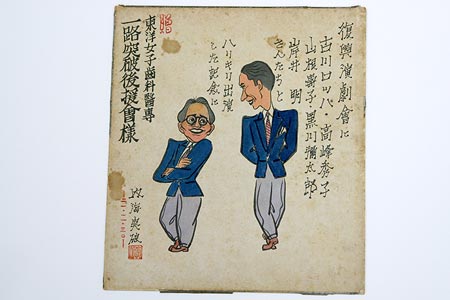 復興演劇會に
古川ロッパ・高峰秀子
山根壽子・黒川彌太郎
岸井　明
さんたちと
ハリキリ出演
した記念に
東洋女子歯科醫専
一路突破後援會様